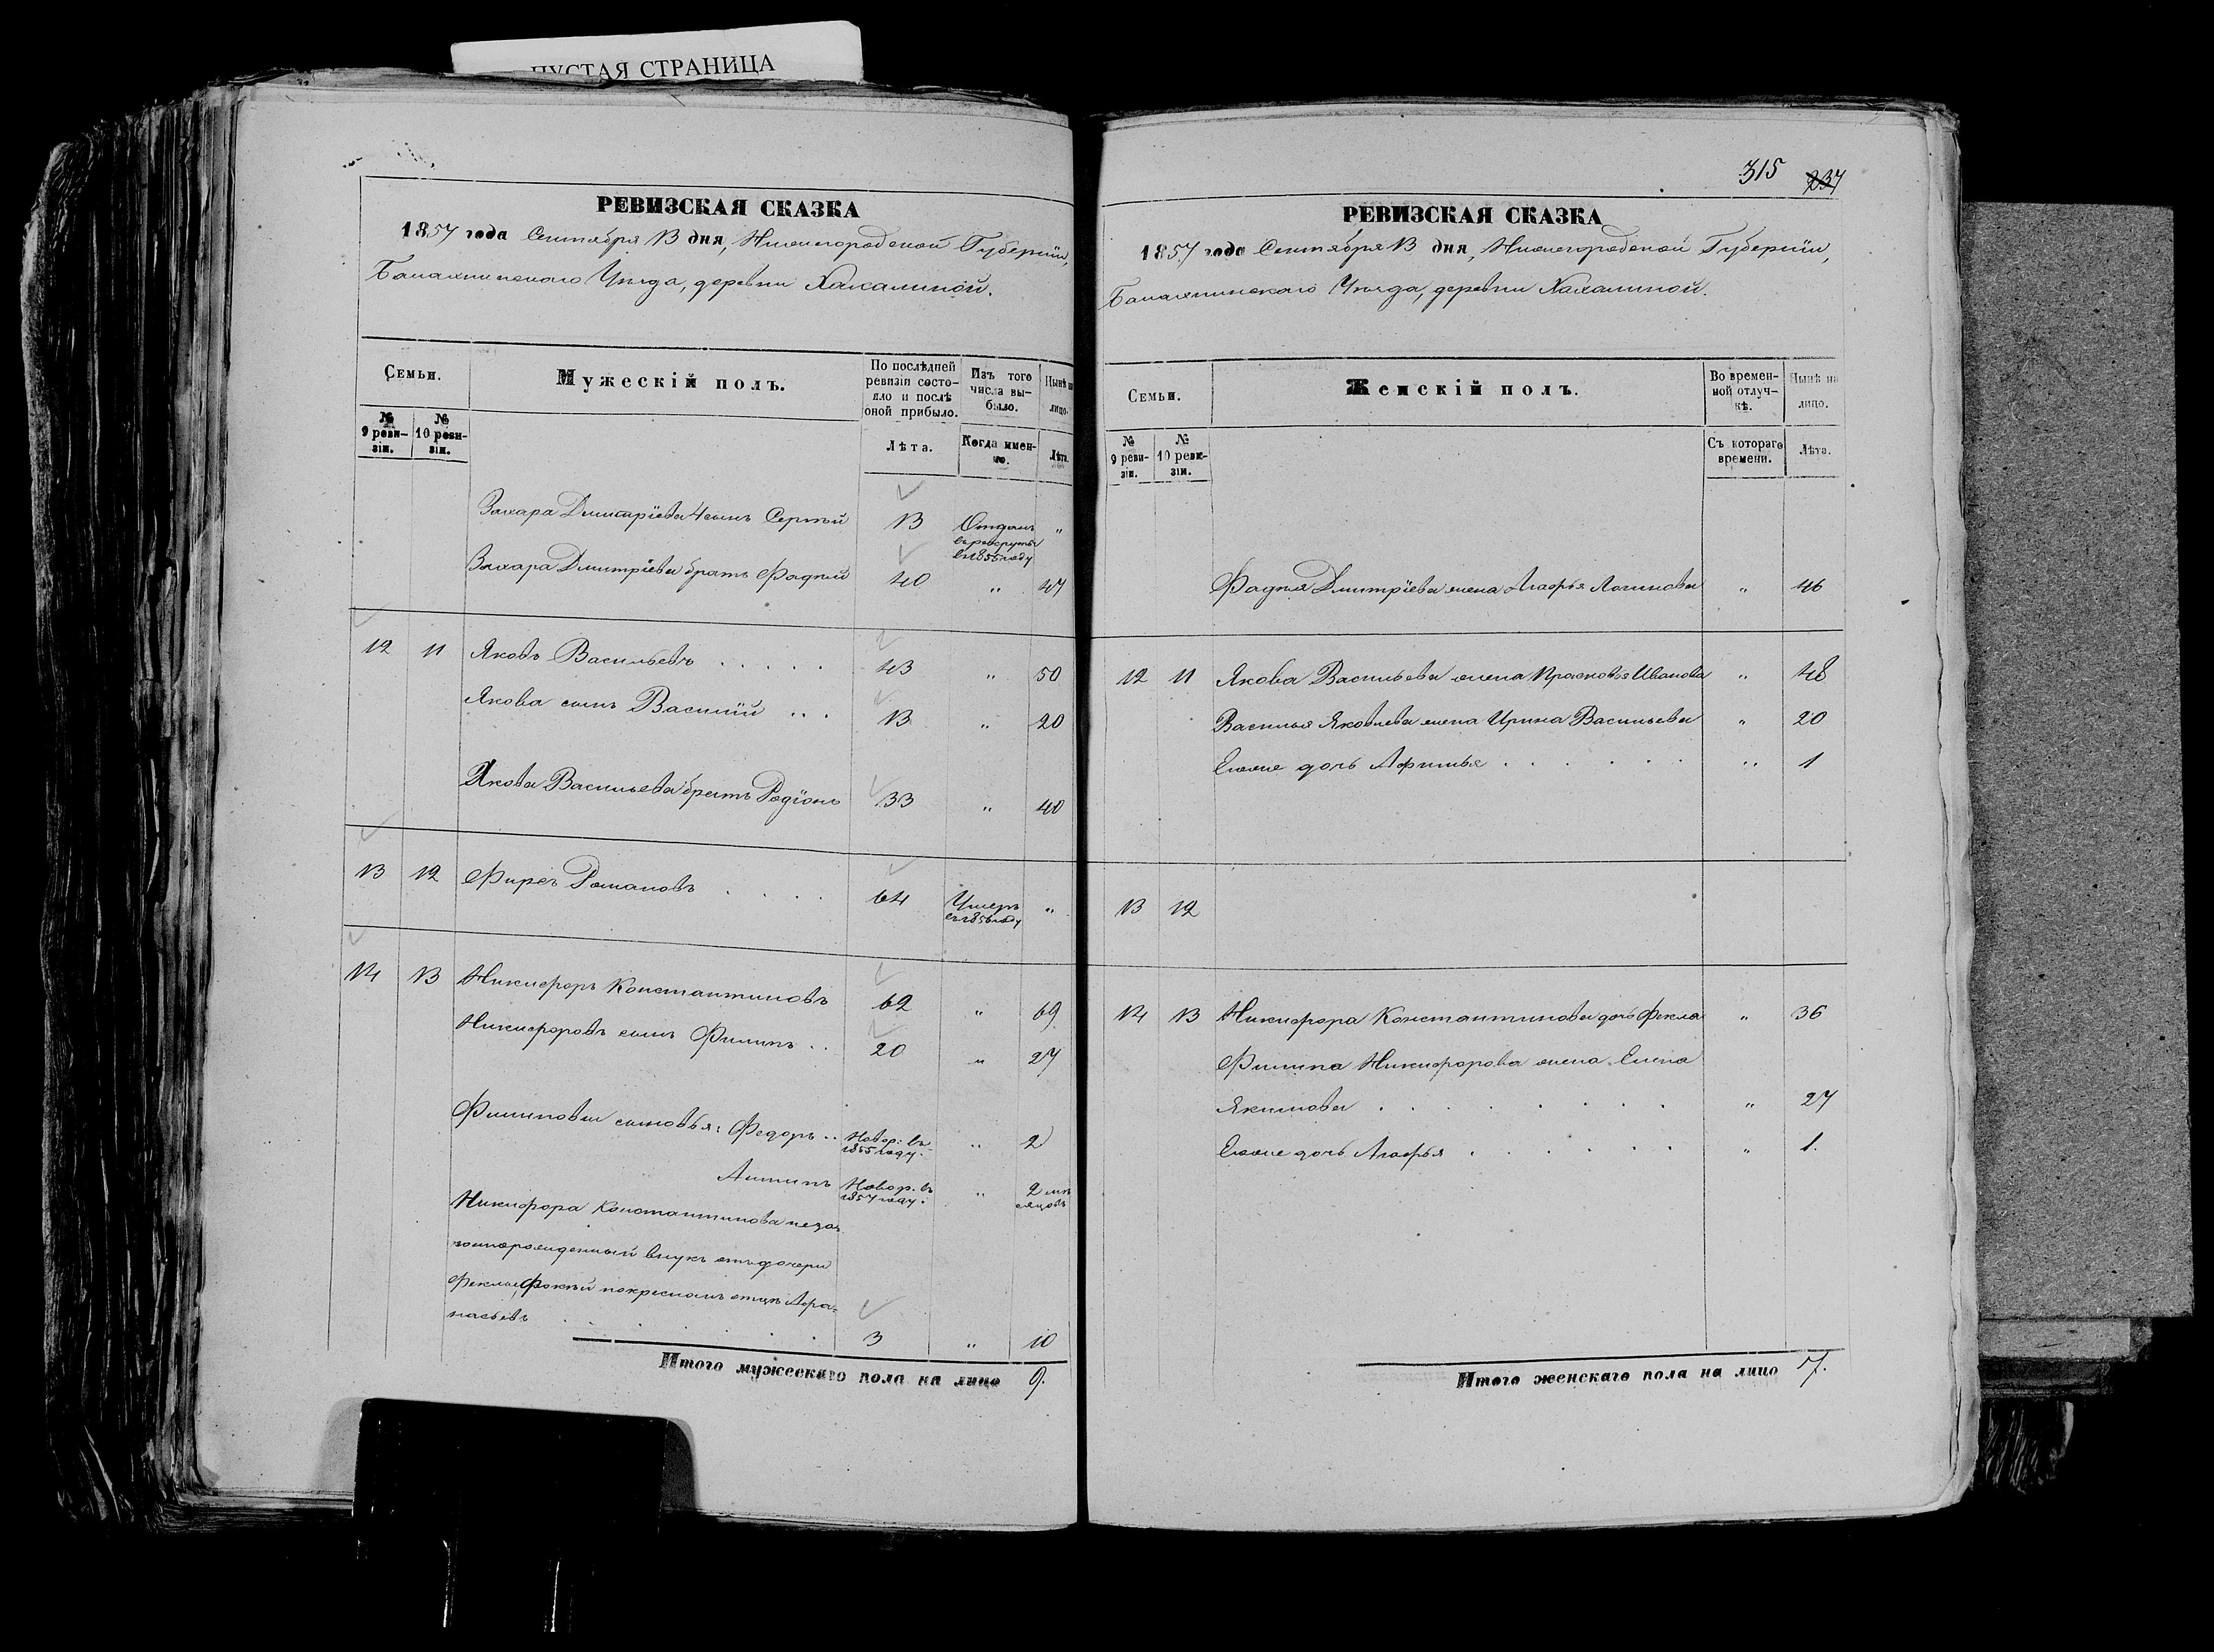 ПУСТАЯ СТРАНИЦА
РЕВИЗСКАЯ СКАЗКА
1857 года Сентября 13 дня, Нижегородской Губернiи,
Балахнинскаго Уѣзда, деревни Хахалиной.
Семьи.
Мужескiй полъ.
По послѣдней ревизiи состояло и послѣ оной прибыло.
Изъ того числа выбыло.
Нынѣ на лицо.
№ 9 ревизiи.
№ 10 ревизiи.
Лѣта.
Когда именно.
Лѣта.
Захара Дмитрiева 4 сынъ Сергѣй 13 Отданъ въ рекруты въ 1855 году "
Захара Дмитрiева братъ Фадѣй 40 " 47
12 11 Яковъ Васильевъ . . . . . 43 " 50
Якова сынъ Василiй . . . 13 " 20
Якова Васильева братъ Родiонъ 33 " 40
13 12 Фирсъ Романовъ . . . . 64 Умеръ въ 1856 году "
14 13 Никифоръ Константиновъ 62 " 69
Никифоровъ сынъ Филипъ . . 20 " 27
Филиповы сыновья: Федоръ . . Новор: въ 1855 году. " 2
Антипъ Новор. въ 1857 году. " 2 мѣсяцовъ
Никифора Константинова незаконнорожденный внукъ отъ дочери
Феклы Фокѣй покресномъ отцѣ Афа=
насьевъ . . . . . . . 3 " 10
Итого мужескаго пола на лицо 9.
315 237
РЕВИЗСКАЯ СКАЗКА
1857 года Сентября 13 дня, Нижегородской Губернiи,
Балахнинскаго Уѣзда, деревни Хахалиной.
Семьи.
Женскiй полъ.
Во временной отлучкѣ.
Нынѣ на лицо.
№ 9 ревизiи.
№ 10 ревизiи.
Съ котораго времени.
Лѣта.
Фадѣя Дмитрiева жена Агафья Логинова " 46
12 11 Якова Васильева жена Прасковья Иванова " 48
Василья Яковлева жена Ирина Васильева " 20
Ея же дочь Афимья . . . . . . " 1
13 12
14 13 Никифора Константинова дочь Фекла " 36
Филипа Никифорова жена Елена
Якимова . . . . . . . " 27
Ея же дочь Агафья . . . . . . " 1.
Итого женскаго пола на лицо 7.